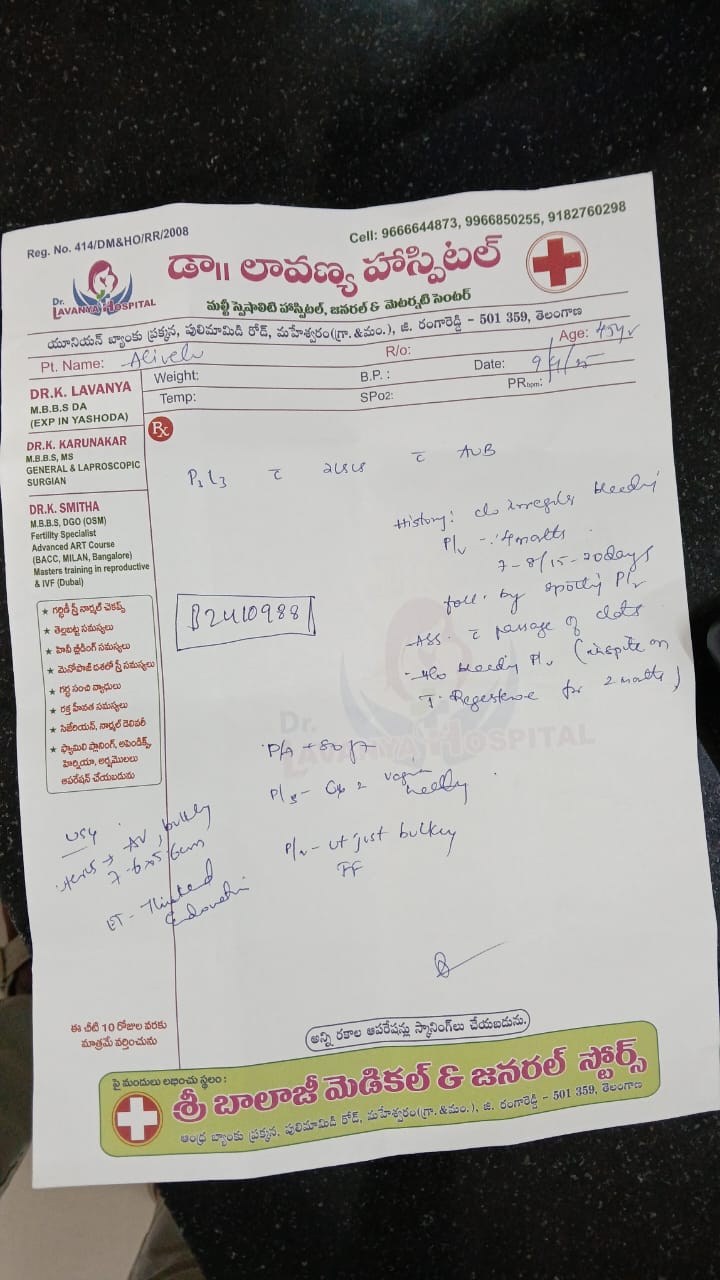 Reg. No. 414/DM&HO/RR/2008
Cell: 9666644873, 9966850255, 9182760298
Dr.
LAVANYA HOSPITAL
డా|| లావణ్య హాస్పిటల్
మల్టీ స్పెషాలిటి హాస్పిటల్, జనరల్ & మెటర్నటి సెంటర్
యూనియన్ బ్యాంకు ప్రక్కన, పులిమామిడి రోడ్, మహేశ్వరం(గ్రా.&మం.), జి. రంగారెడ్డి - 501 359, తెలంగాణ
Pt. Name: Alivelu R/o: Age: 45yr
Weight: B.P.: Date: 9/4/25
Temp: SPo2: PRbpm:
DR.K. LAVANYA
M.B.B.S DA
(EXP IN YASHODA)
DR.K. KARUNAKAR
M.B.B.S, MS
GENERAL & LAPROSCOPIC
SURGIAN
DR.K. SMITHA
M.B.B.S, DGO (OSM)
Fertility Specialist
Advanced ART Course
(BACC, MILAN, Bangalore)
Masters training in reproductive
& IVF (Dubai)
★ గర్భిణీ స్త్రీ నార్మల్ చెకప్స్
★ తెల్లబట్ట సమస్యలు
★ హెవీ బ్లీడింగ్ సమస్యలు
★ మెనోపాజ్ దశలో స్త్రీ సమస్యలు
★ గర్భ సంచి వ్యాధులు
★ రక్త హీనత సమస్యలు
★ సిజేరియన్, నార్మల్ డెలివరీ
★ ఫ్యామిలి ప్లానింగ్, అపెండిక్స్,
హెర్నియా, అర్షమొలలు
ఆపరేషన్ చేయబడును
Rx
AUB
History: c/o irregular bleeding
P/v - 4 months
7-8/15-20days
foll. by spotting P/v
- Ass. c̄ passage of clots
- H/o bleeding P/v (inspite on
T. Regestrone for 2 months)
B2410988
Dr.
LAVANYA HOSPITAL
P/A - soft
P/s - Cx & vagina healthy
P/v - ut just bulky
FF
USG
uterus → AV, bulky
7.6x5.6cm
ET - Thickened
Endometri
ఈ చీటి 10 రోజుల వరకు
మాత్రమే వర్తించును
అన్ని రకాల ఆపరేషన్లు స్కానింగ్‌లు చేయబడును.
పై మందులు లభించు స్థలం :
శ్రీ బాలాజీ మెడికల్ & జనరల్ స్టోర్స్
ఆంధ్ర బ్యాంకు ప్రక్కన, పులిమామిడి రోడ్, మహేశ్వరం(గ్రా.&మం.), జి. రంగారెడ్డి - 501 359, తెలంగాణ